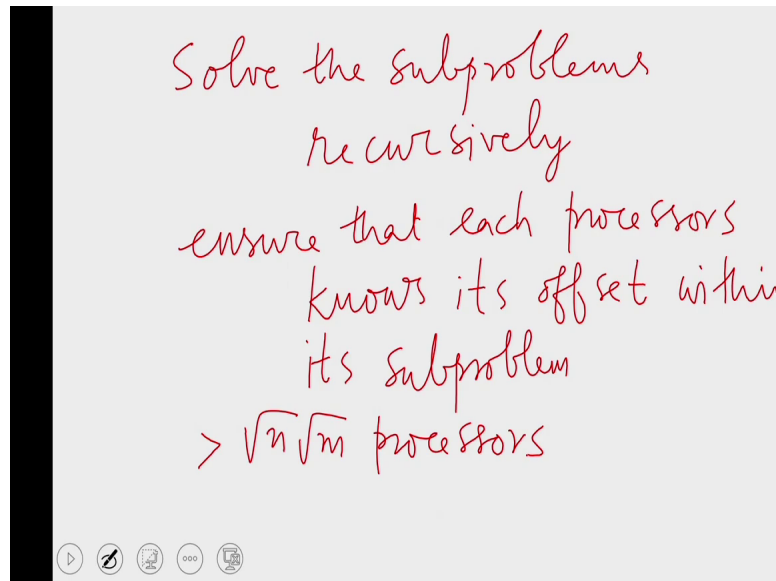 Solve the subproblems
recursively
ensure that each processors
knows its offset within
its subproblem
> √n√m processors